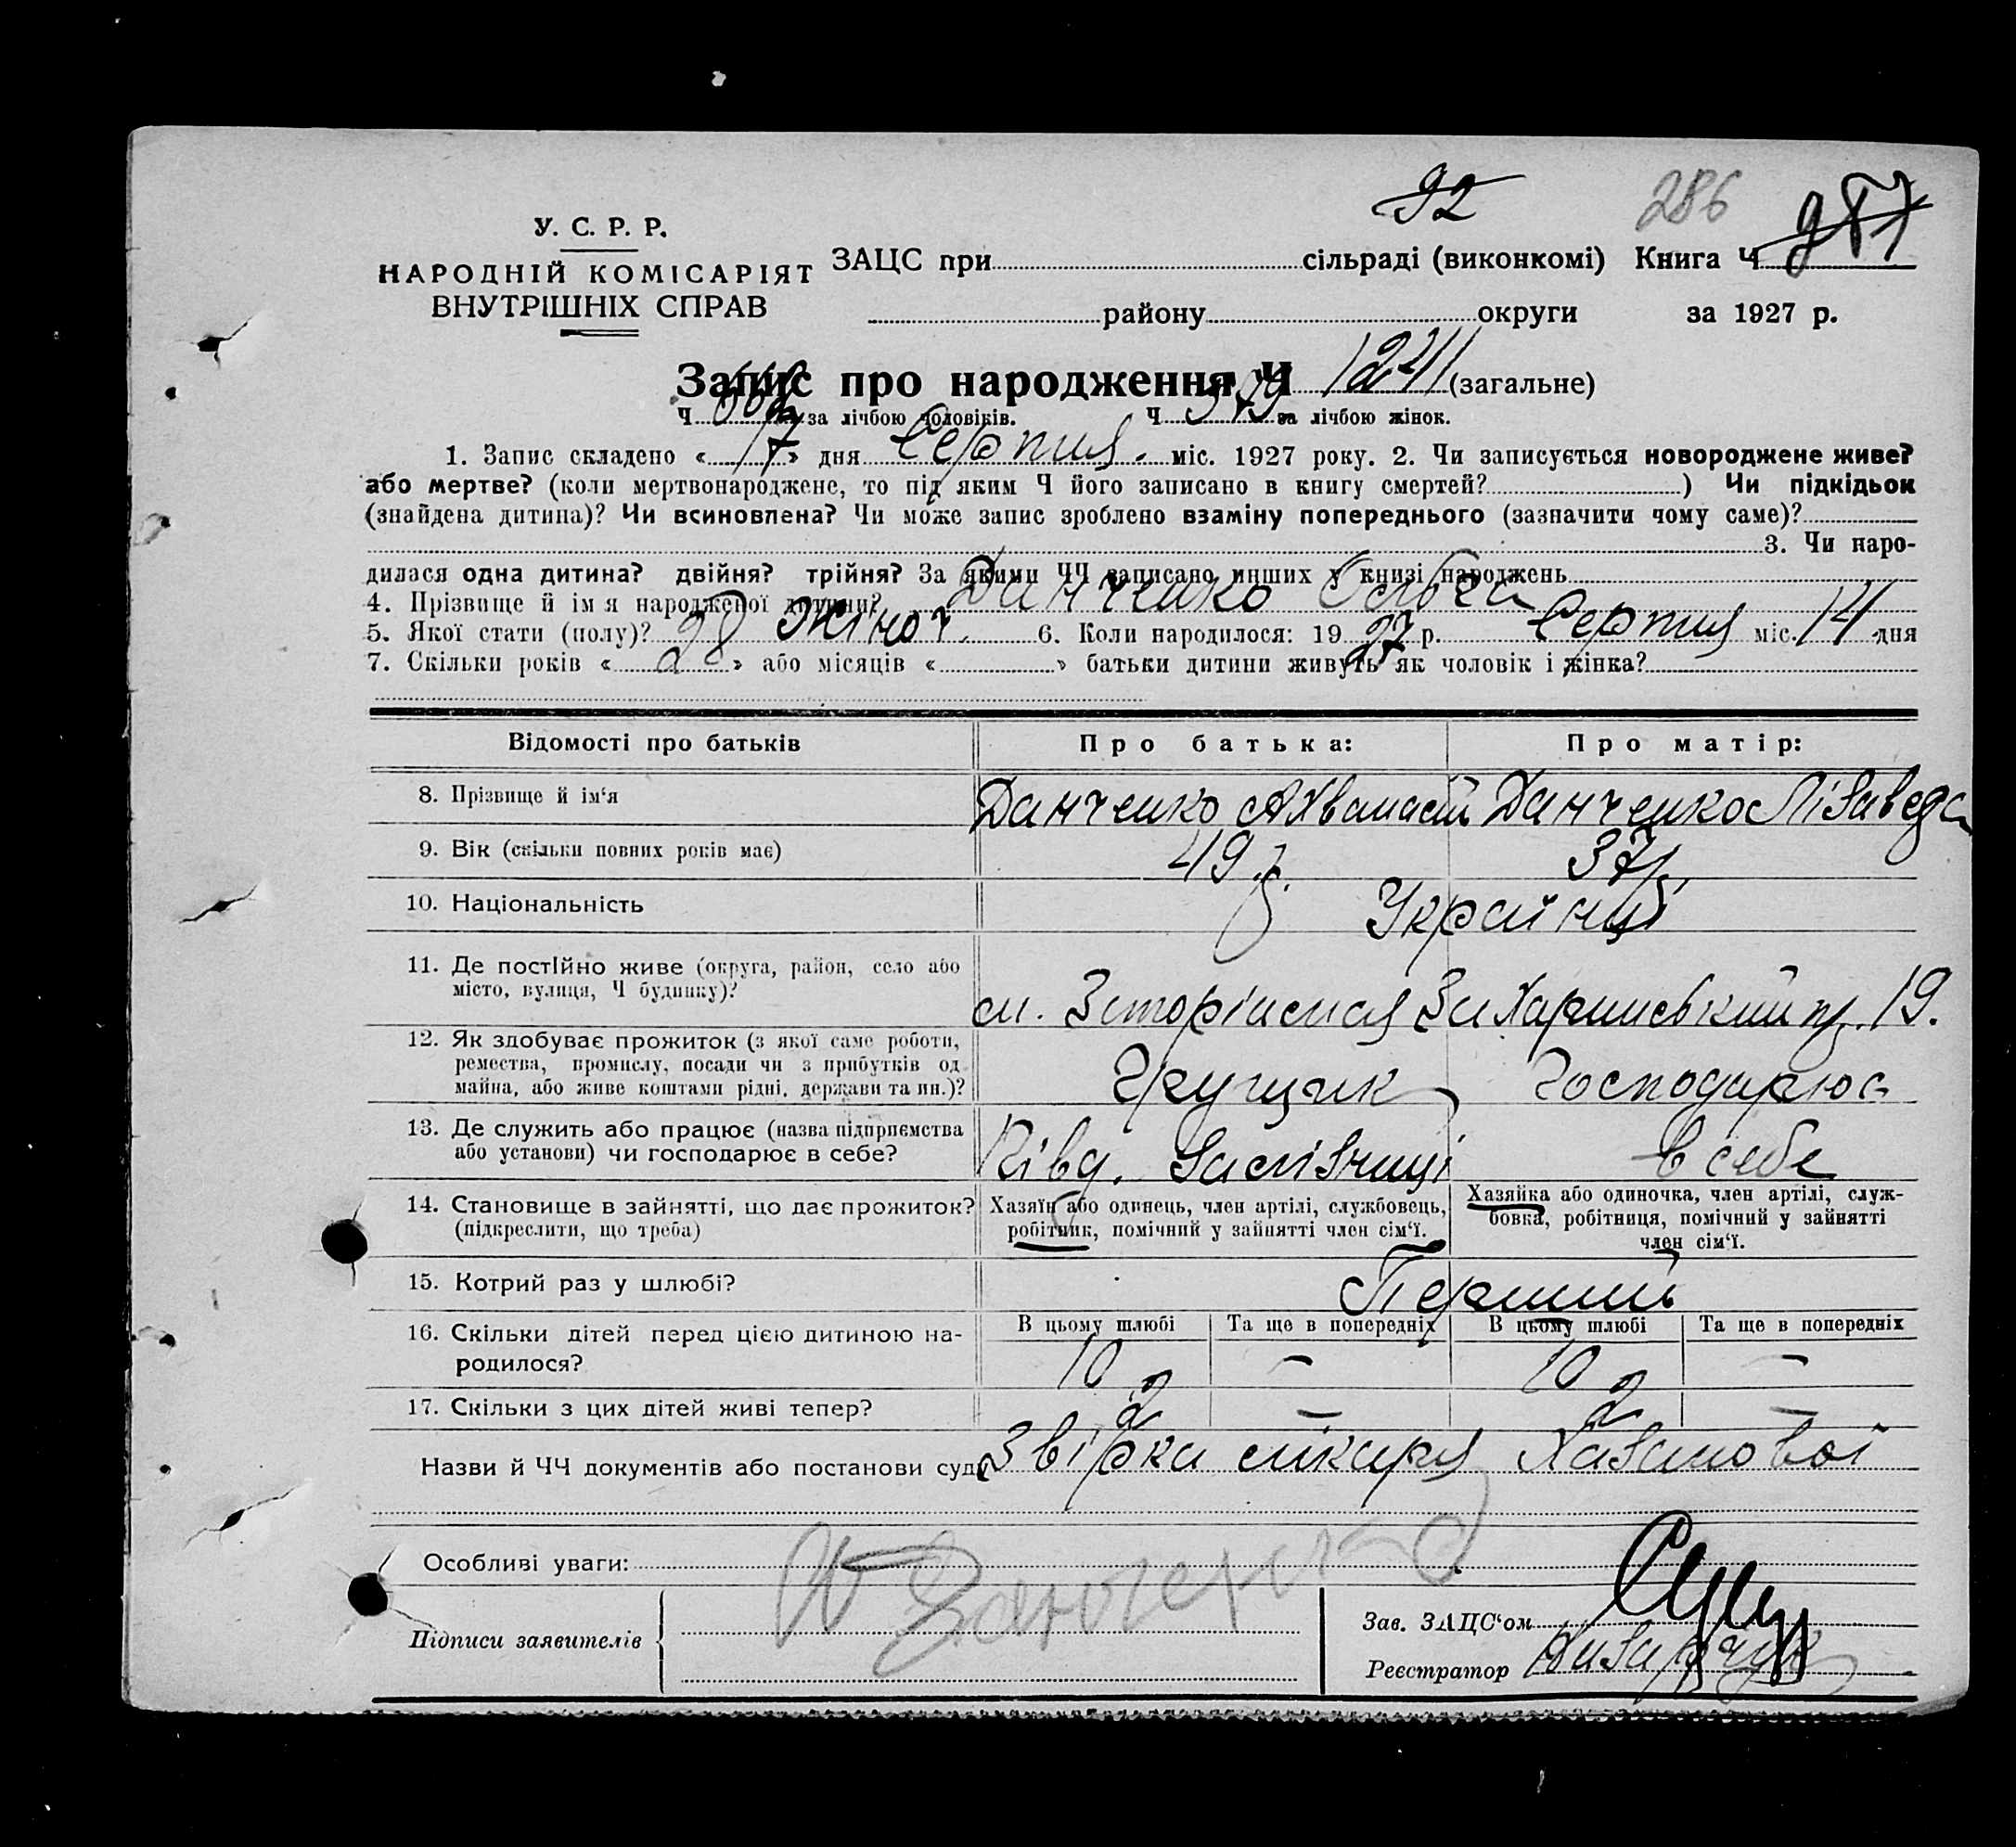 92 286 987
У. С. Р. Р.
НАРОДНІЙ КОМІСАРІЯТ
ВНУТРІШНІХ СПРАВ
ЗАЦС при сільраді (виконкомі) Книга Ч
району округи за 1927 р.
Запис про народження Ч 1241 (загальне)
Ч за лічбою чоловіків. Ч 579 за лічбою жінок.
1. Запис складено « 17 » дня Серпня. міс. 1927 року. 2. Чи записується новороджене живе?
або мертве? (коли мертвонароджене, то під яким Ч його записано в книгу смертей? ) Чи підкідьок
(знайдена дитина)? Чи всиновлена? Чи може запис зроблено взаміну попереднього (зазначити чому саме)?
3. Чи наро-
дилася одна дитина? двійня? трійня? За якими ЧЧ записано инших у книзі народжень
4. Прізвище й ім я народженої дитини? Данченко Ольга
5. Якої стати (полу)? жіноч. 6. Коли народилося: 19 27 р. Серпня міс. 14 дня
7. Скільки років « 28 » або місяців « » батьки дитини живуть як чоловік і жінка?
Відомості про батьків Про батька: Про матір:
8. Прізвище й ім‘я Данченко Ахванасій Данченко Лізаведа
9. Вік (скільки повних років має) 49 р. 37 р.
10. Національність Українці
11. Де постійно живе (округа, район, село або
місто, вулиця, Ч будинку)?
19.
12. Як здобуває прожиток (з якої саме роботи,
ремества, промислу, посади чи з прибутків од
майна, або живе коштами рідні, держави та ин.)?
Грущик Господарює
13. Де служить або працює (назва підприємства
або установи) чи господарює в себе?
Півд. Залізниці в себе
14. Становище в зайнятті, що дає прожиток?
(підкреслити, що треба)
Хазяїн або одинець, член артілі, службовець,
робітник, помічний у зайнятті член сім‘ї.
Хазяйка або одиночка, член артілі, служ-
бовка, робітниця, помічний у зайнятті
член сім‘ї.
15. Котрий раз у шлюбі? Перший
16. Скільки дітей перед цією дитиною на-
родилося?
В цьому шлюбі Та ще в попередніх В цьому шлюбі Та ще в попередніх
10 — 10 —
17. Скільки з цих дітей живі тепер? 2 — 2 —
Назви й ЧЧ документів або постанови суду Звірка лікаря Хазанової
Особливі уваги:
Підписи заявителів
Зав. ЗАЦС‘ом
Реєстратор